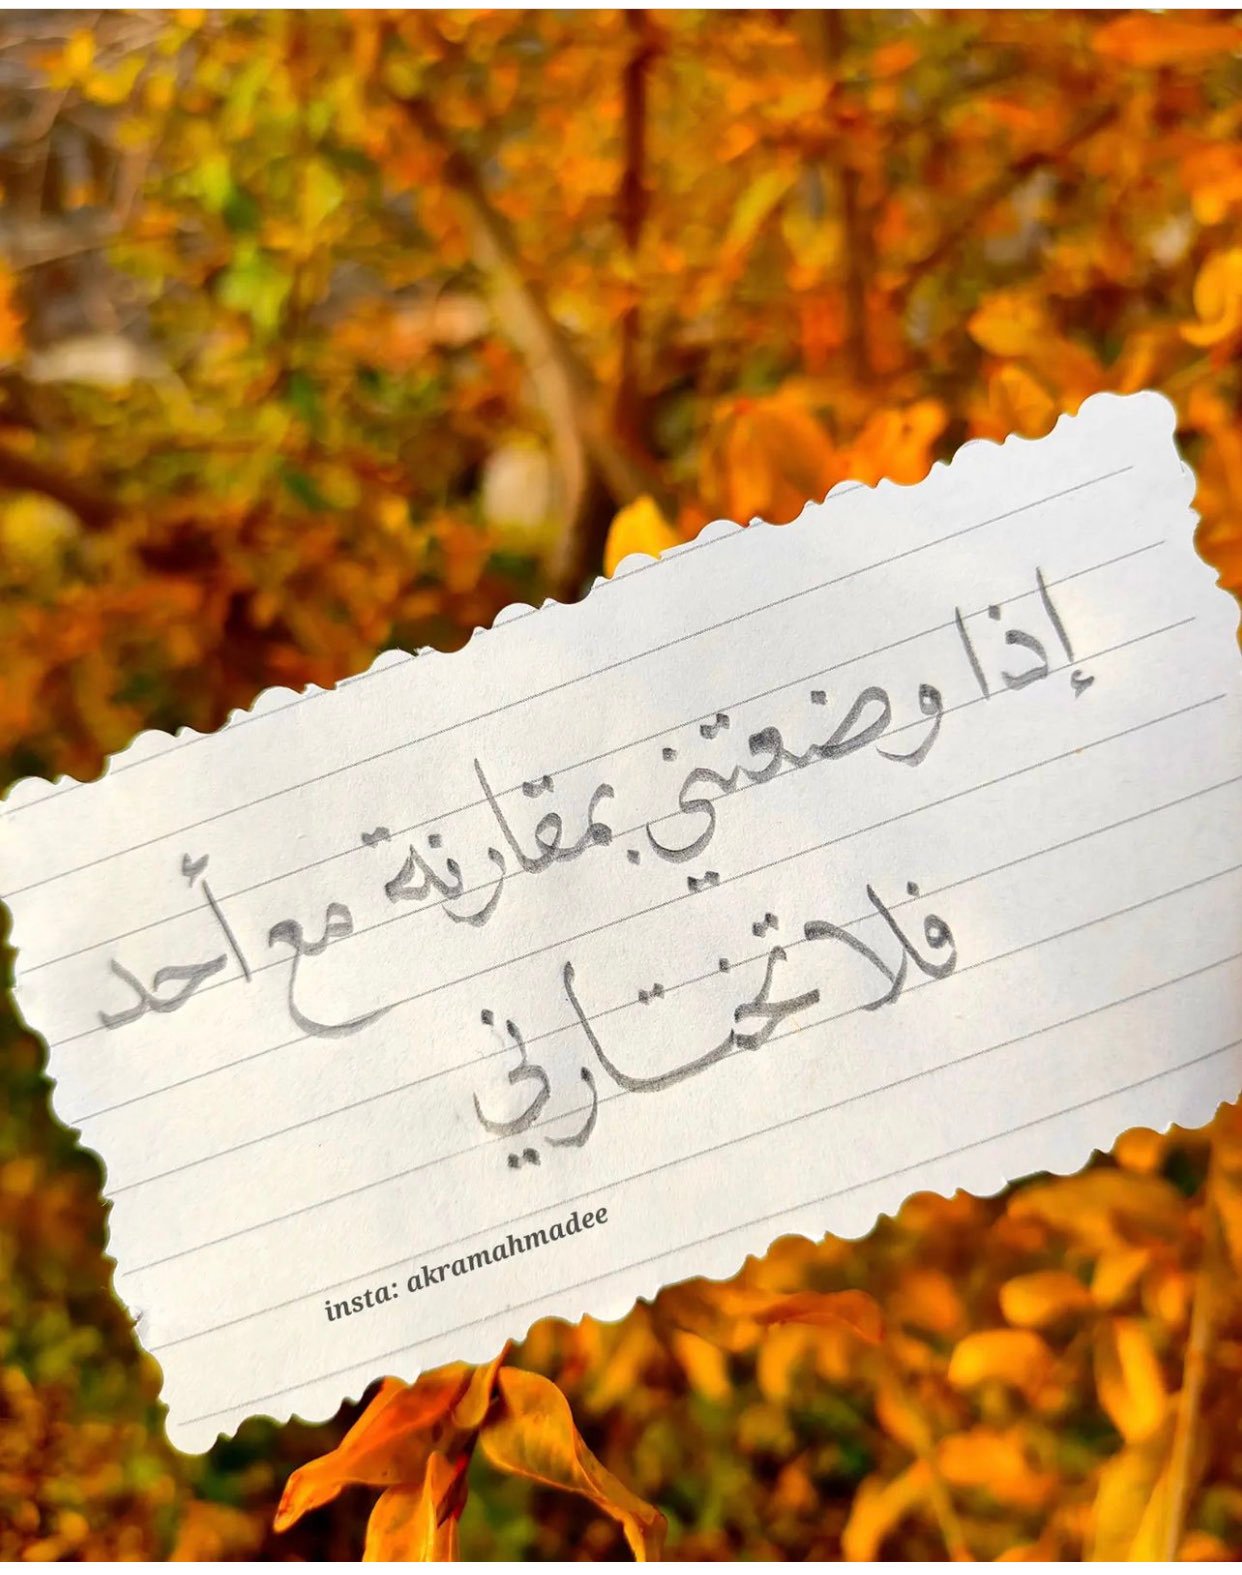 إذا وضعتني بمقارنة مع أحد
فلا تختارني
insta: akramahmadee